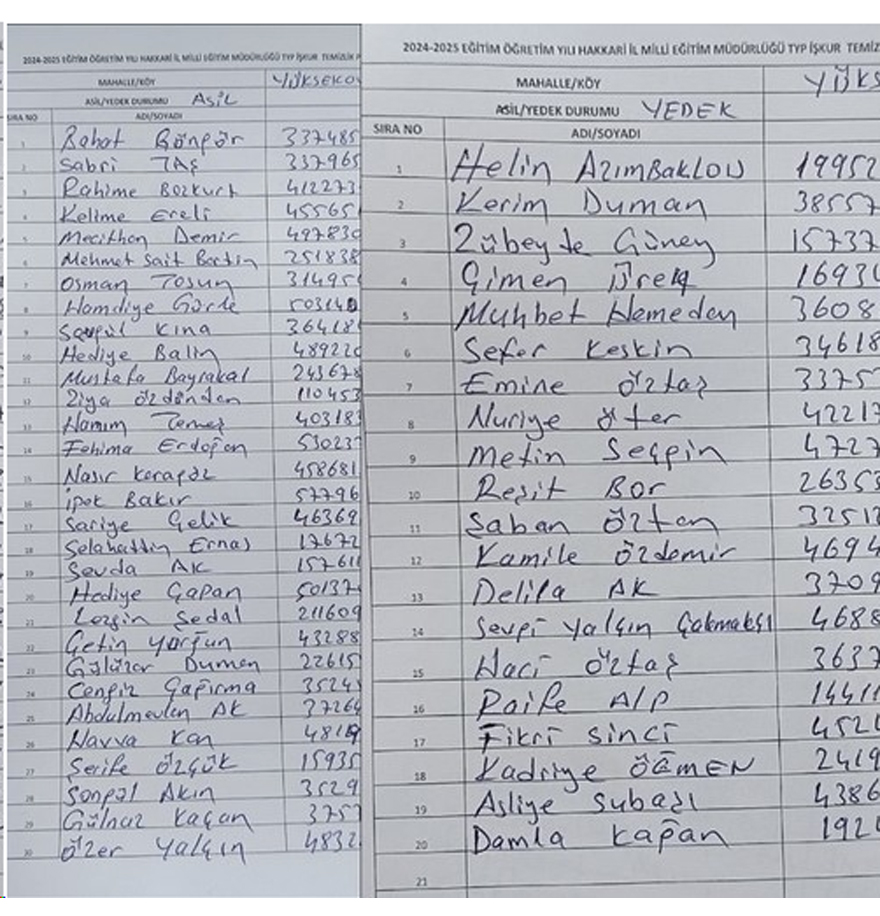 2024-2025 EĞİTİM ÖĞRETİM YILI HAKKARİ İL MİLLİ EĞİTİM MÜDÜRLÜĞÜ TYP İŞKUR TEMİZLİK
MAHALLE/KÖY YÜKSEKO
ASİL/YEDEK DURUMU ASİL
SIRA NO ADI/SOYADI
1 Rahat Böngör 337485
2 Sabri TAŞ 337965
3 Rahime Bozkurt 412273
4 Kelime Ereli 45565
5 Mecithan Demir 497830
6 Mehmet Sait Bartin 251838
7 Osman Tosun 31495
8 Hamdiye Gürle 503140
9 Songül Kına 364181
10 Hediye Balin 489220
11 Mustafa Bayrakal 243678
12 Ziya Özdönden 110453
13 Hanım Temez 403183
14 Fehima Erdoğan 530237
15 Nasır Karagöz 458681
16 İpek Bakır 57796
17 Sariye Çelik 46369
18 Selahattin Ernas 17672
19 Sevda AK 157611
20 Hediye Çapan 50137
21 Lezgin Sedal 211609
22 Çetin Yorğun 43288
23 Gülüzar Duman 22615
24 Cengiz Çağırma 35241
25 Abdulmevlen AK 37264
26 Havva Kan 4819
27 Şerife Özgök 15935
28 Songül Akın 3529
29 Gülnaz Kaçan 3757
30 Özer Yalçın 4832
2024-2025 EĞİTİM ÖĞRETİM YILI HAKKARİ İL MİLLİ EĞİTİM MÜDÜRLÜĞÜ TYP İŞKUR TEMİZ
MAHALLE/KÖY YÜKS
ASİL/YEDEK DURUMU YEDEK
SIRA NO ADI/SOYADI
1 Helin AZIMBAKLOU 19952
2 Kerim Duman 38557
3 Zübeyde Güney 15737
4 Çimen 1693
5 Muhbet Hemeden 3608
6 Sefer Keskin 34618
7 Emine Öztaş 33757
8 Nuriye Öter 42217
9 Metin Seçgin 4727
10 Reşit Bor 26353
11 Şaban Öztan 32512
12 Kamile Özdemir 4694
13 Delila AK 3709
14 Sevgi Yalçın Çakmakçı 4688
15 Naci Öztaş 3637
16 Raife Alp 14411
17 Fikri Sinci 4521
18 Kadriye ÖĞMEN 2419
19 Asliye Subaşı 4386
20 Damla Kağan 192
21